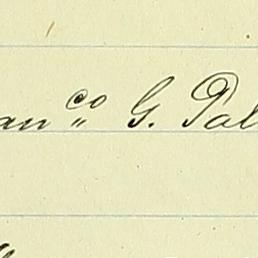 anco G. Pal